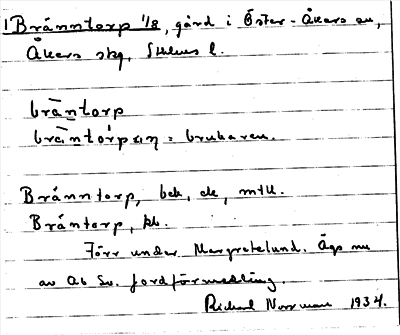 Bränntorp 1/8, gård i Öster-Åkers sn,
Åkers skg, Sthlms l.
bràntorp
bràntorpaɳ = brukaren.
Bränntorp, bek, de, mtl.
Bräntorp, kb.
Förr under Margretelund. Ägs nu
av Ab Sv. Jordförmedling.
Richard Norrman 1934.